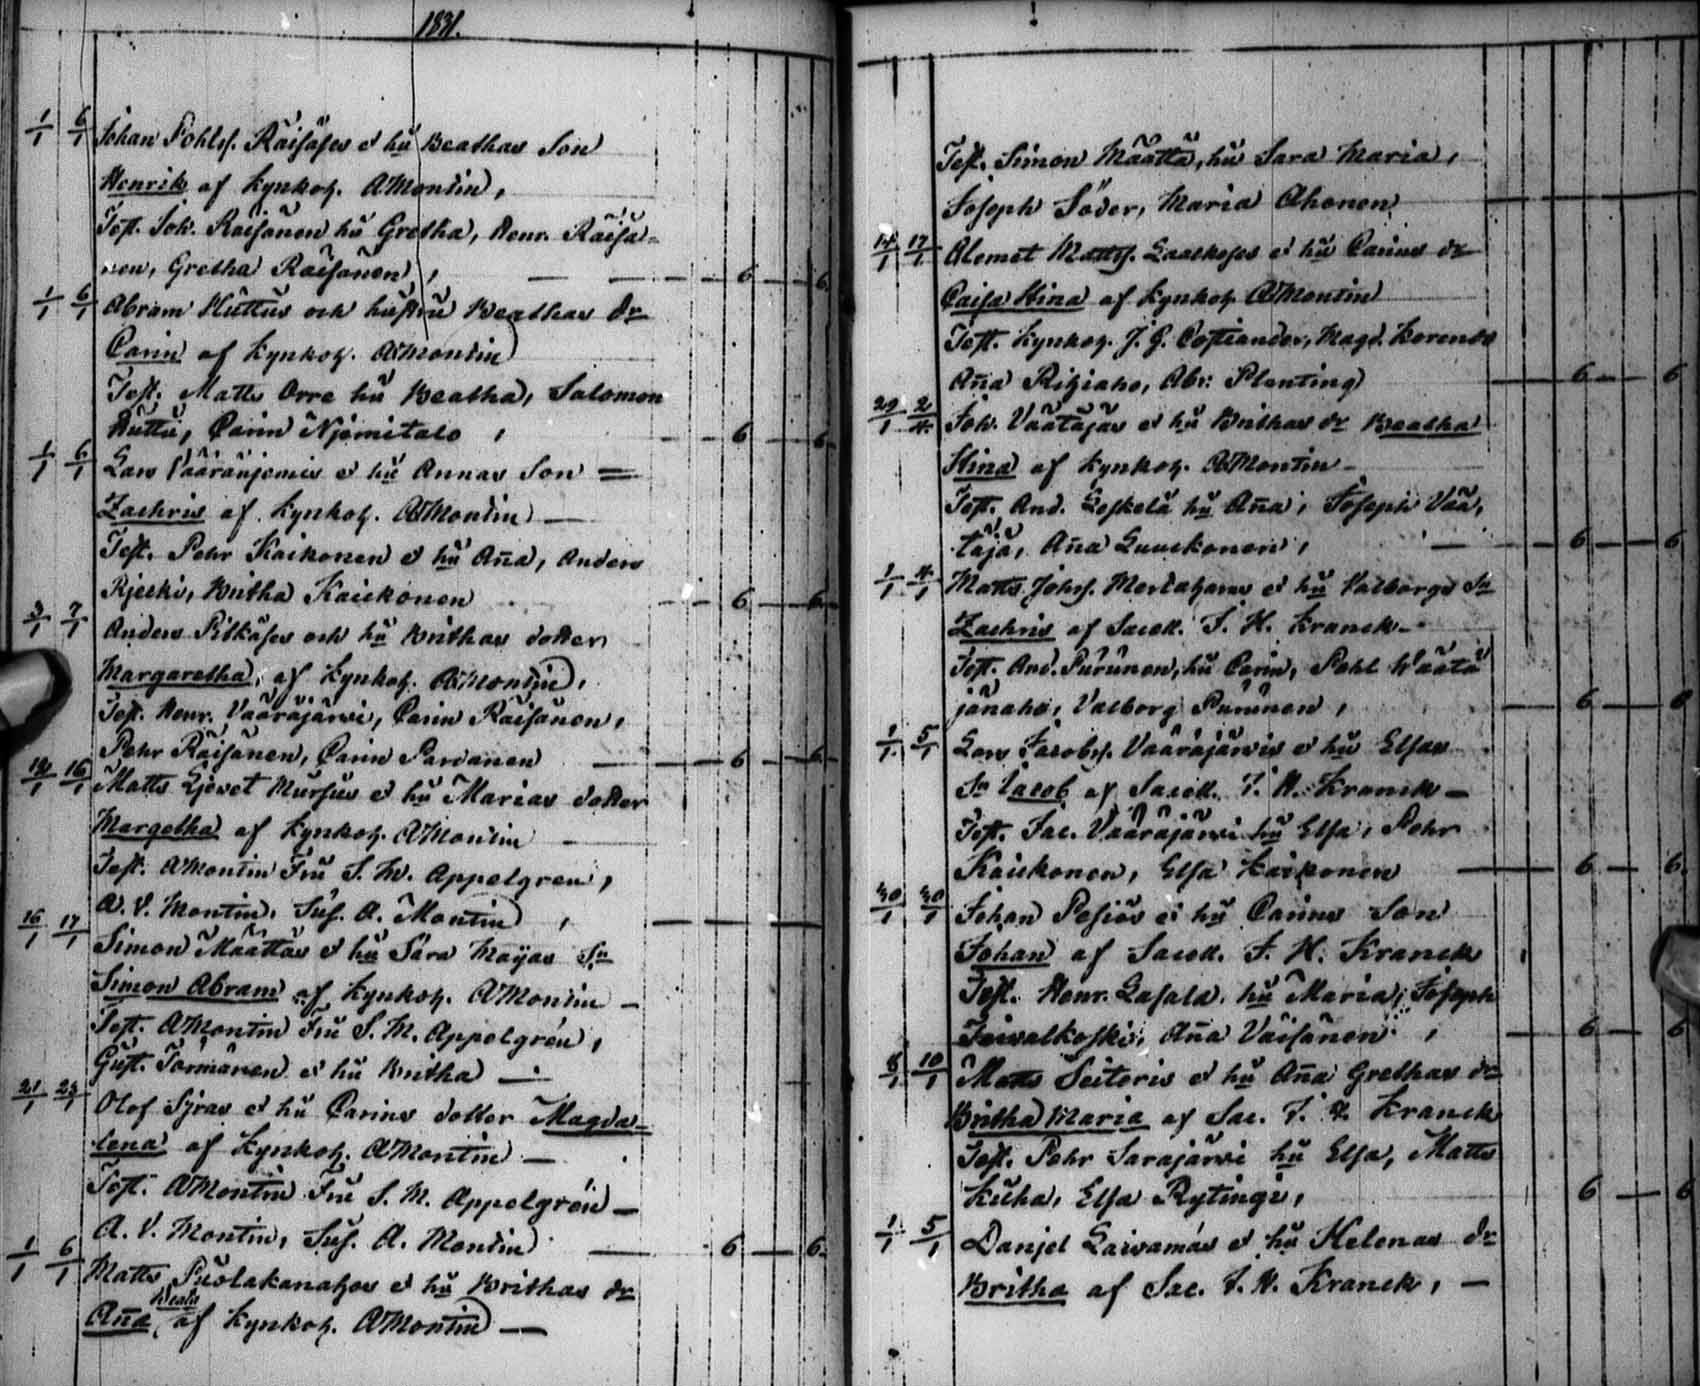 1831.
1/1 6/1 Johan Pohlss. Räisäses et hu Beathas Son
Henrik af Kynkoh. A Montin,
Test. Joh. Räisänen hu Gretha, Henr. Räisä=
nen, Gretha Räisänen, 6 6
1/1 6/1 Abram Huttus och hustru Beathas dr
Carin af Kynkoh. A Montin
Test. Matts Orre hu Beatha, Salomon
Huttu, Carin Njemitalo, 6 6
1/1 6/1 Lars Vääränjemis et hu Annas Son =
Zachris af Kynkoh. A Montin —
Test. Pehr Kaikonen et hu Aña, Anders
Rjecki, Britha Kaickonen 6 6
3/1 7/1 Anders Pitkäses och hu Brithas dotter
Margaretha, af Kynkoh. A Montin,
Test. Henr. Vääräjärvi, Carin Räisänen,
Pehr Räisänen, Carin Parvanen 6 6
14/1 16/1 Matts Ljevet Mursus et hu Marias dotter
Margetha af Kynkoh. A Montin
Test. A Montin Fru S. M. Appelgren,
A. V. Montin, Sus. A. Montin,
16/1 17/1 Simon Määttäs et hu Sara Majas Sn
Simon Abram af Kynkoh. A Montin —
Test. A Montin Fru S. M. Appelgrén,
Gust. Törmänen et hu Britha —
21/1 23/1 Olof Syras et hu Carins dotter Magda=
lena af Kynkoh. A Montin —
Test. A Montin Fru S. M. Appelgrén —
A. V. Montin, Sus. A. Montin 6 6
1/1 6/1 Matts Puolakanahos et hu Brithas dr
Aña Beata af Kynkoh. A Montin —
Test. Simon Määttä, hu Sara Maria,
Joseph Söder, Maria Ahonen
14/1 17/1 Clemet Mattss. Laackoses et hu Carins dr
Caisa Stina af Kynkoh. A Montin
Test. Kynkoh. J. G. Costiander, Magd. Korends
Aña Rihiaho, Abr. Planting 6 6
29/1 2/4 Joh. Väätäjäs et hu Brithas dr Beatha
Stina af Kynkoh. A Montin —
Test. And. Leskelä hu Aña, Joseph Vää,
täjä, Aña Luuckonen, 6 6
1/1 4/1 Matts Johss. Mertahans et hu Valborgs Sn
Zachris af Sacell. J. H. Kranck —
Test. And. Purunen, hu Carin, Pohl Väätä
jänaho, Valborg Purunen, 6 6
1/1 5/1 Lars Jacobss. Vääräjärvis et hu Elsas
Sn Jacob af Sacell. J. H. Kranck —
Test. Jac. Vääräjärvi hu Elsa, Pehr
Kaickonen, Elsa Kaikonen 6 6
30/1 30/1 Johan Posios et hu Carins Son
Johan af Sacell. J. H. Kranck
Test. Henr. Lasala, hu Maria, Joseph
Jaivalkoski, Aña Väisänen, 6 6
8/1 10/1 Matts Seiteris et hu Aña Grethas dr
Britha Maria af Sac. J. H. Kranck
Test. Pehr Sarajärvi hu Elsa, Matts
Kuha, Elsa Rytingi, 6 6
1/1 5/1 Danjel Laivamás et hu Helenas dr
Britha af Sac. J. H. Kranck, —